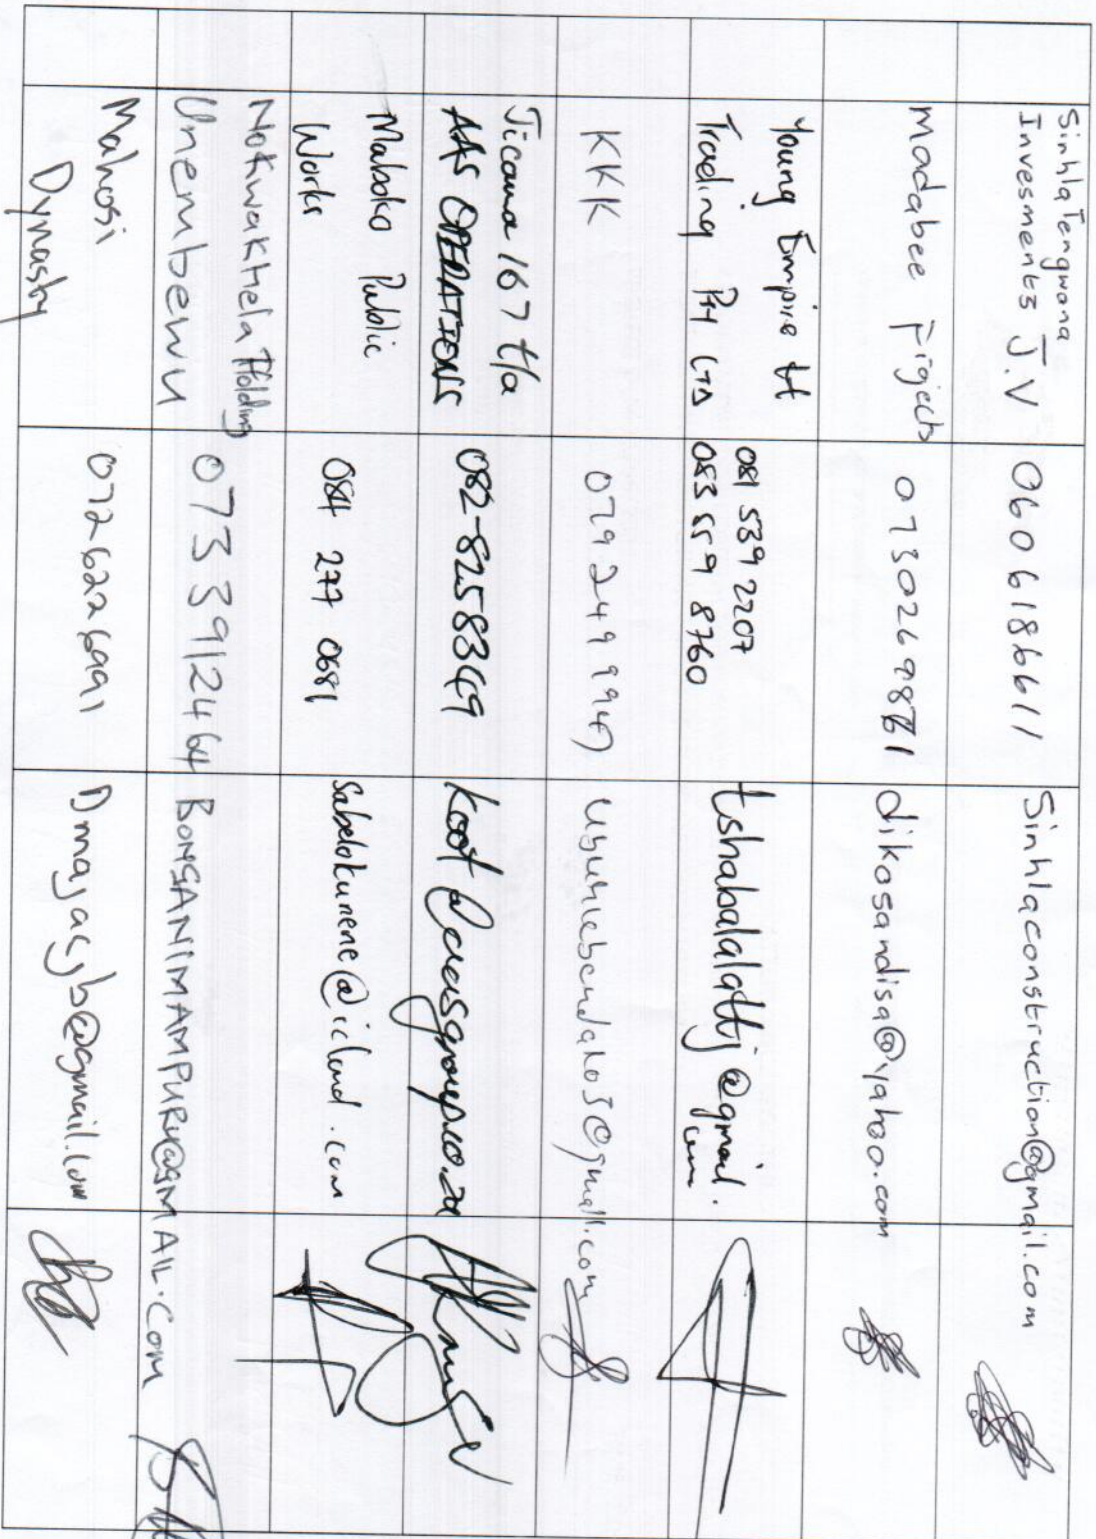 Sinhla Tengwana
Invesments J.V
060 6186611
Sinhlaconstruction@gmail.com
Madabee Projects
0730269861
dikosandisa@yahoo.com
Young Empire tt
Trading Pty LTD
081 539 2207
083 559 8760
tshabalalattj@gmail.
com
KKK
079 249 9947
Jicama 167 t/a
AAS OPERATIONS
082-8258349
Maboko Public
Works
084 277 0681
Sabelokunene@icloud.com
Nokwakhela Holding
Umembewu
0733912464
BONGANIMAMPURU@GMAIL.COM
Mahosi
Dynasty
0726226991
Dmagagb@gmail.com